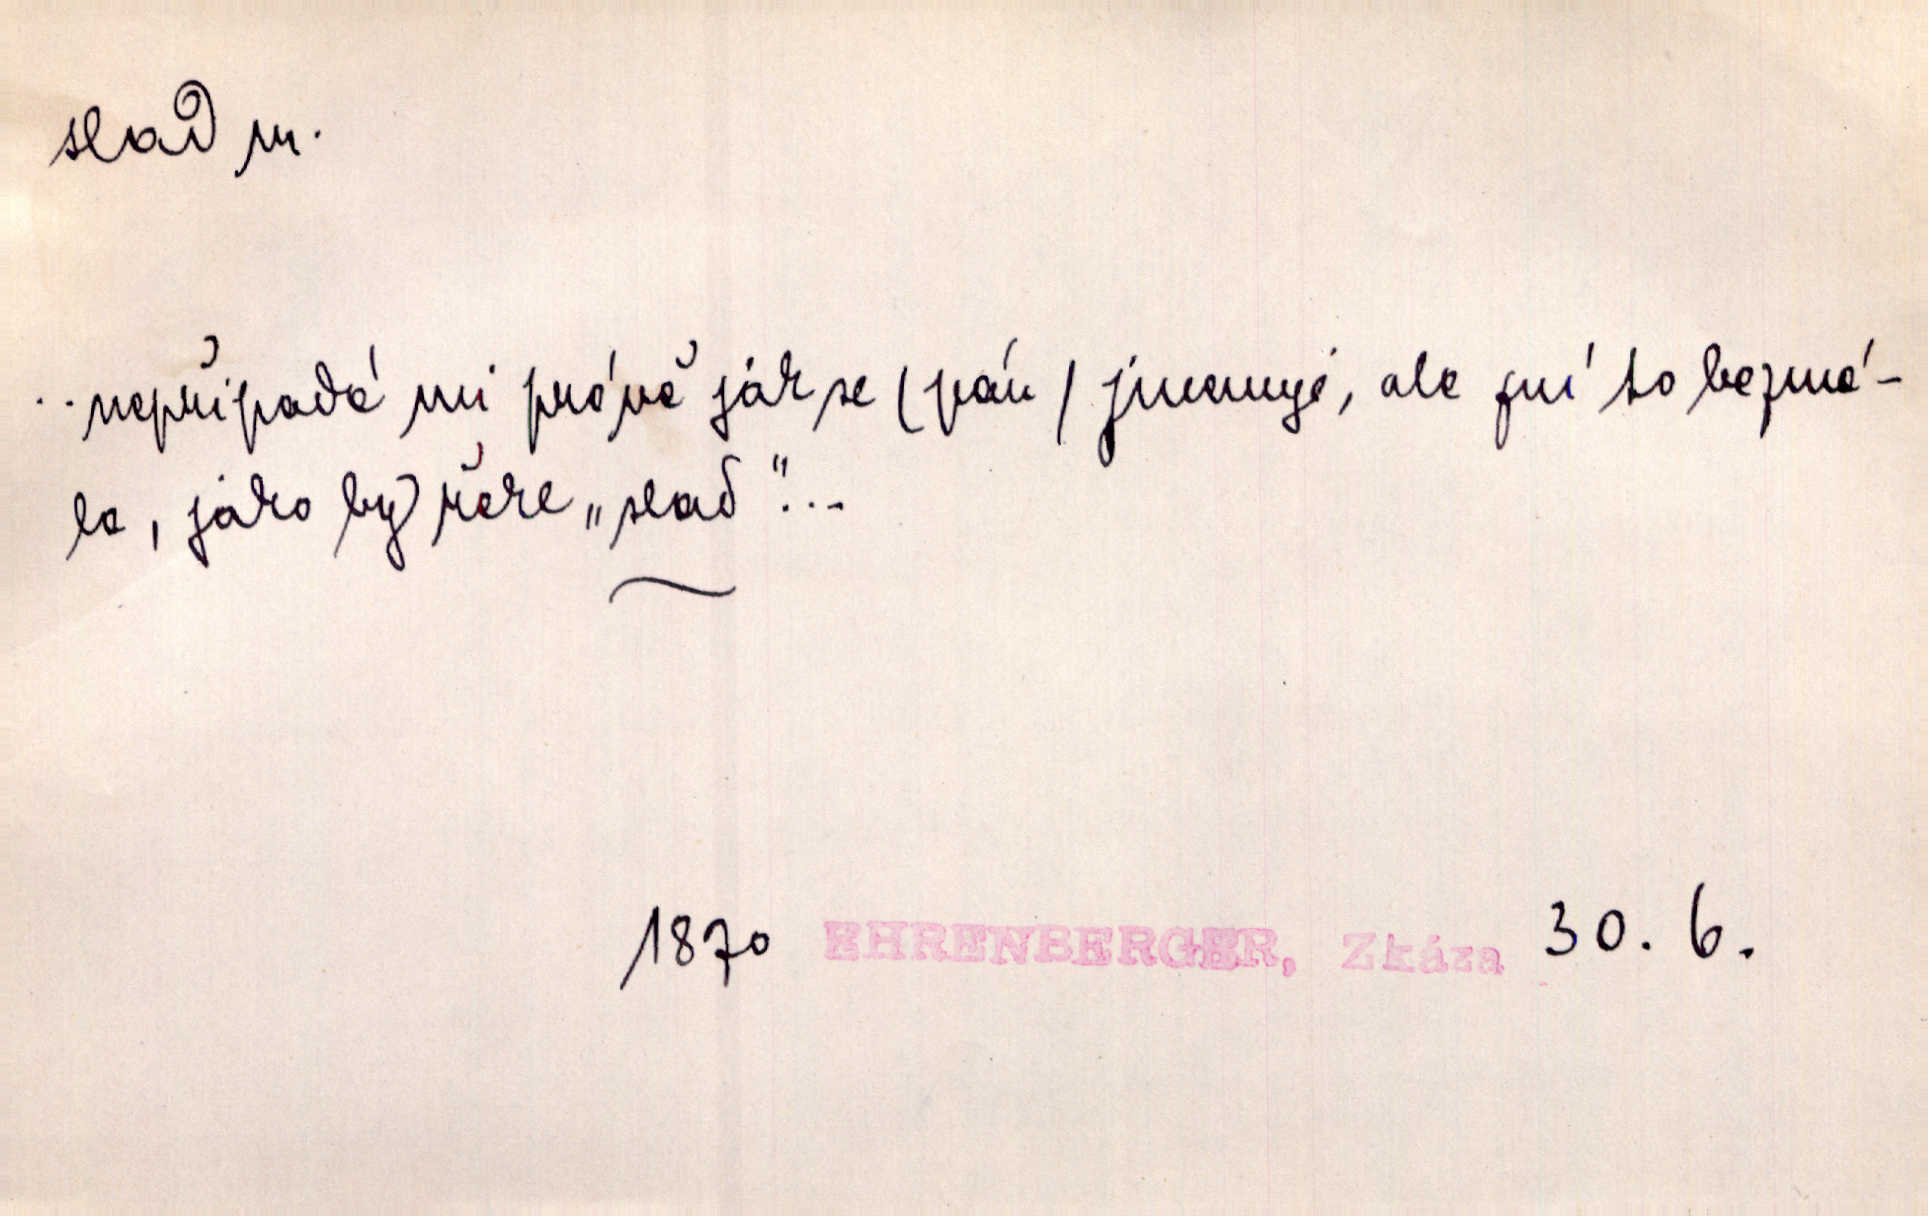 slad m.
..nepřipadá mi právě jak se (pán) jmenuje, ale zní to bezmá-
la, jako by řekl „slad"...
1870 EHRENBERGER, Zkáza 30. 6.